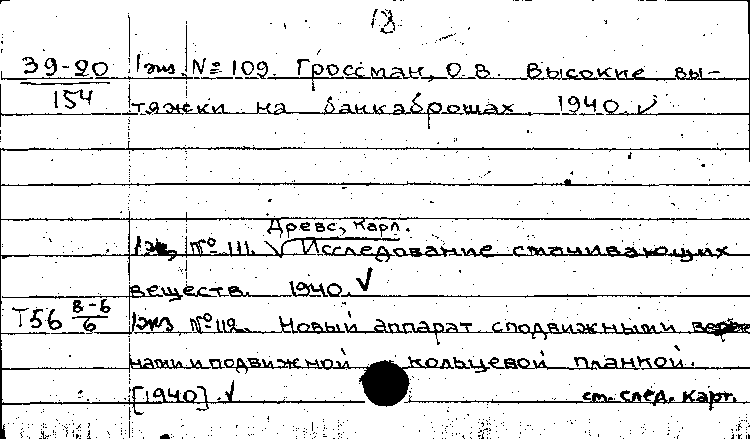 18
39-20 1 экз. № 109. Гроссман, О.В. Высокие вы-
154 тяжки на банкаброшах. 1940. ✓
Древс, Карл.
1 экз. № 111. √ Исследование смачивающих
веществ. 1940. ✓
Т56 8-6/6 1 экз № 112. Новый аппарат сподвижными вере
нами и подвижной кольцевой планкой.
[1940] ✓ см. след. карт.